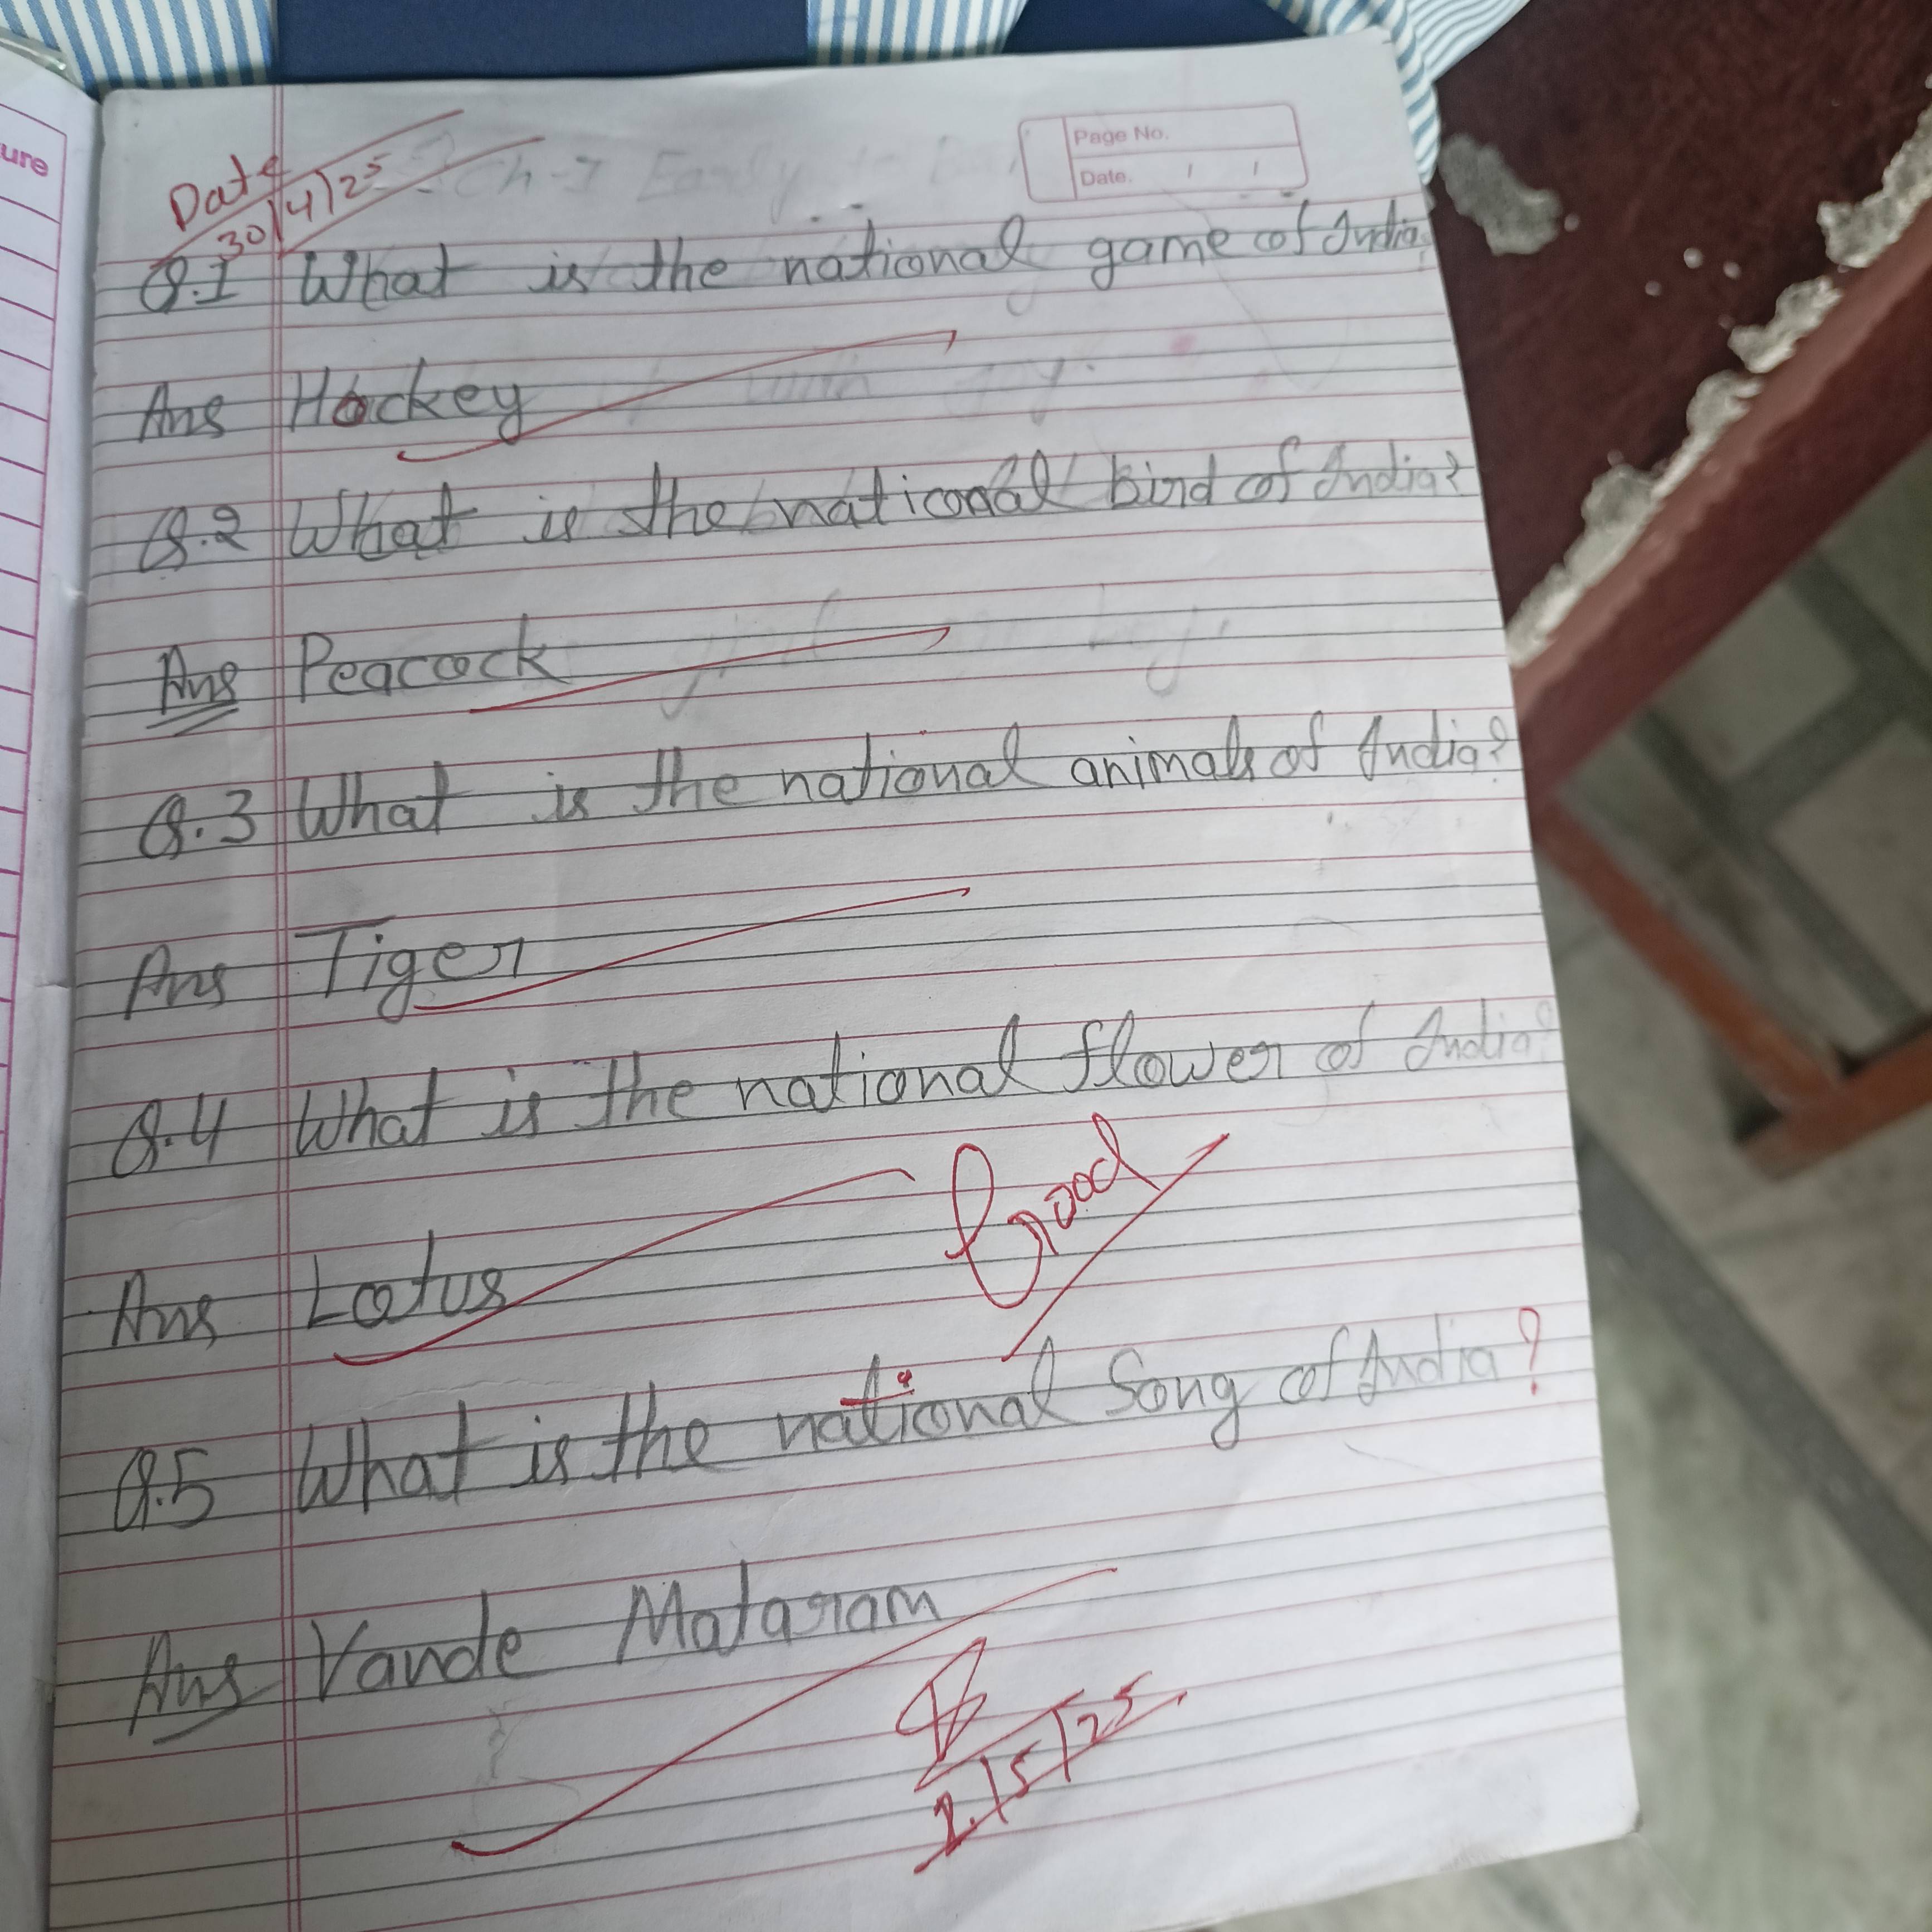 ure
Page No.
Date. / /
Date
30/4/25
Q.1 What is the national game of India?
Ans Hockey
Q.2 What is the national bird of India?
Ans Peacock
Q.3 What is the national animals of India?
Ans Tiger
Q.4 What is the national flower of India?
Good
Ans Lotus
Q.5 What is the national Song of India?
Ans Vande Mataram
2/5/25